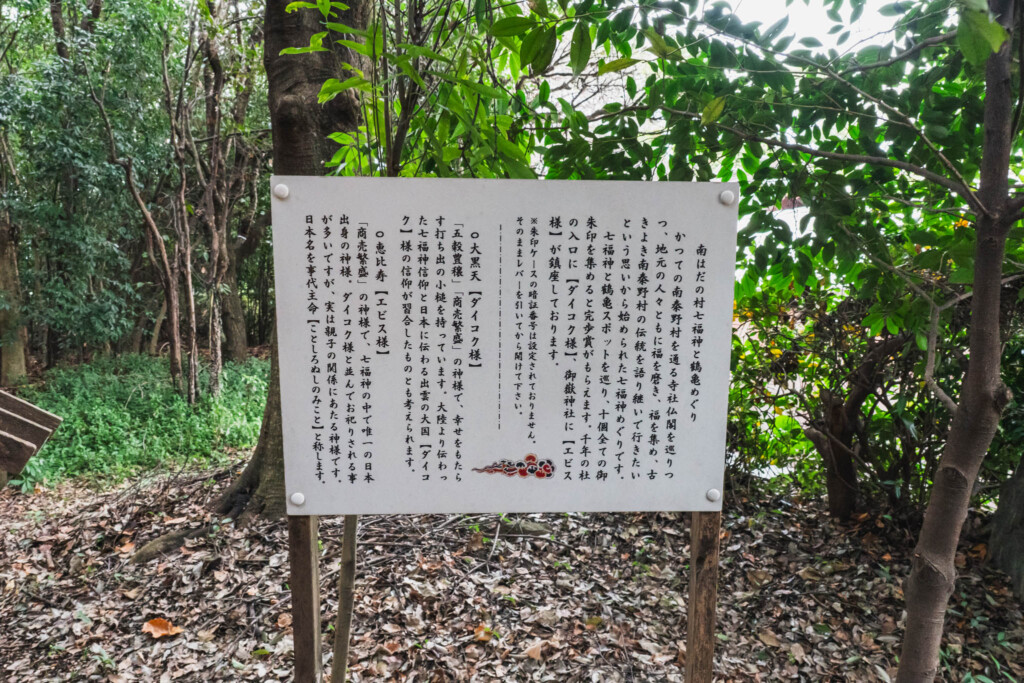 南はだの村七福神と鶴亀めぐり
かつての南秦野村を通る寺社仏閣を巡りつ
つ、地元の人々ともに福を磨き、福を集め、古
きよき南秦野村の伝統を語り継いで行きたい
という思いから始められた七福神めぐりです。
七福神と鶴亀スポットを巡り、十個全ての御
朱印を集めると完歩賞がもらえます。千年の杜
の入口に【ダイコク様】、御嶽神社に【エビス
様】が鎮座しております。
※朱印ケースの暗証番号は設定されておりません。
そのままレバーを引いてから開けて下さい。
〇大黒天【ダイコク様】
「五穀豊穣」「商売繁盛」の神様で、幸せをもたら
す打ち出の小槌を持っています。大陸より伝わっ
た七福神信仰と日本に伝わる出雲の大国【ダイコ
ク】様の信仰が習合したものとも考えられます。
〇恵比寿【エビス様】
「商売繁盛」の神様で、七福神の中で唯一の日本
出身の神様。ダイコク様と並んでお祀りされる事
が多いですが、実は親子の関係にあたる神様です。
日本名を事代主命【ことしろぬしのみこと】と称します。